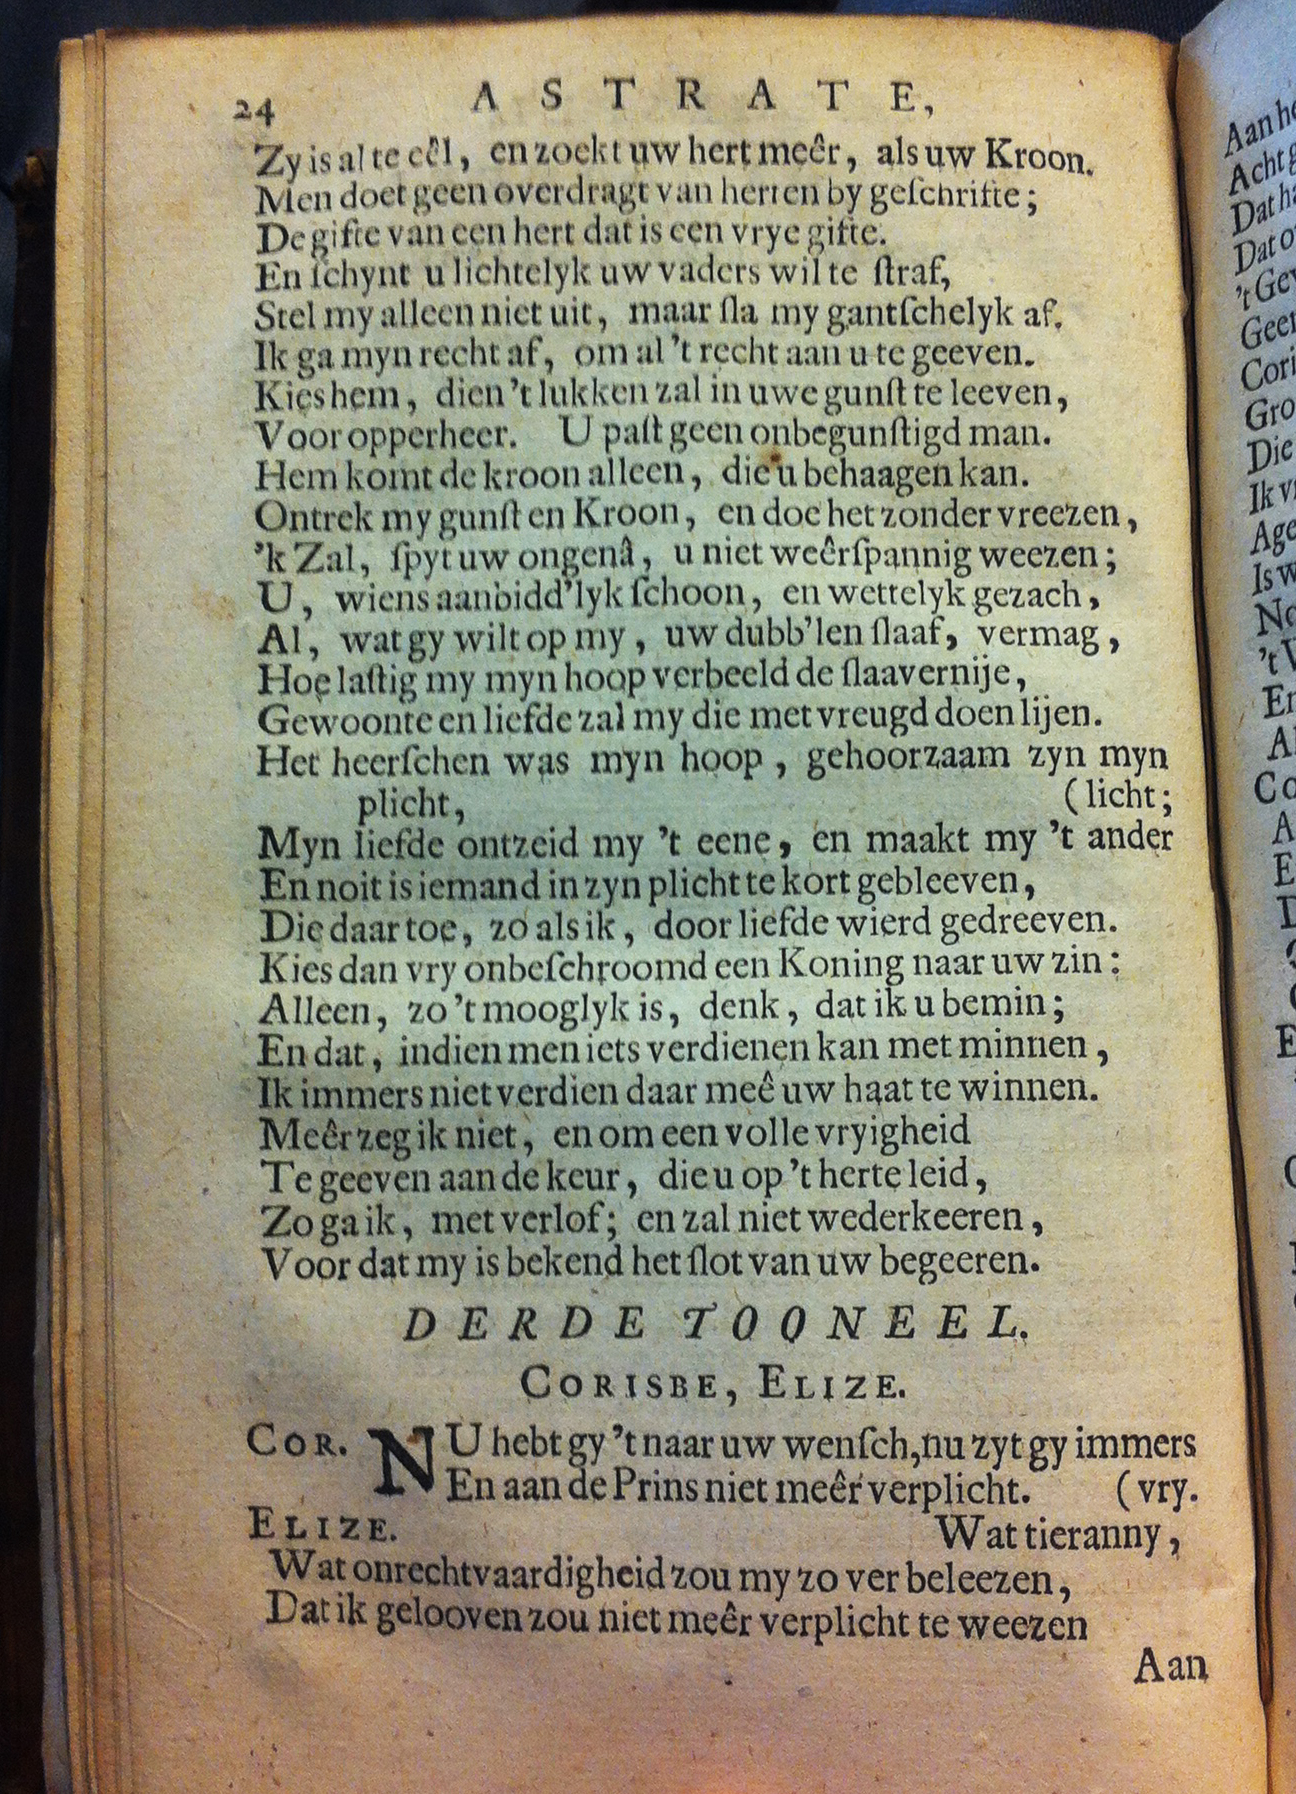 24 ASTRATE,
Zy is al te eêl, en zoekt uw hert meêr, als uw Kroon.
Men doet geen overdragt van herten by geſchrifte;
De gifte van een hert dat is een vrye gifte.
En ſchynt u lichtelyk uw vaders wil te ſtraf,
Stel my alleen niet uit, maar ſla my gantſchelyk af.
Ik ga myn recht af, om al 't recht aan u te geeven.
Kies hem, dien 't lukken zal in uwe gunſt te leeven,
Voor opperheer. U paſt geen onbegunſtigd man.
Hem komt de kroon alleen, die u behaagen kan.
Ontrek my gunſt en Kroon, en doe het zonder vreezen,
'k Zal, ſpyt uw ongenâ, u niet weêrſpannig weezen;
U, wiens aanbidd'lyk ſchoon, en wettelyk gezach,
Al, wat gy wilt op my, uw dubb'len ſlaaf, vermag,
Hoe laſtig my myn hoop verbeeld de ſlaavernije,
Gewoonte en liefde zal my die met vreugd doen lijen.
Het heerſchen was myn hoop, gehoorzaam zyn myn
plicht, (licht;
Myn liefde ontzeid my 't eene, en maakt my 't ander
En noit is iemand in zyn plicht te kort gebleeven,
Die daar toe, zo als ik, door liefde wierd gedreeven.
Kies dan vry onbeſchroomd een Koning naar uw zin:
Alleen, zo 't mooglyk is, denk, dat ik u bemin;
En dat, indien men iets verdienen kan met minnen,
Ik immers niet verdien daar meê uw haat te winnen.
Meêr zeg ik niet, en om een volle vryigheid
Te geeven aan de keur, die u op 't herte leid,
Zo ga ik, met verlof; en zal niet wederkeeren,
Voor dat my is bekend het ſlot van uw begeeren.
DERDE TOONEEL.
CORISBE, ELIZE.
COR. NU hebt gy 't naar uw wenſch, nu zyt gy immers
En aan de Prins niet meêr verplicht. (vry.
ELIZE. Wat tieranny,
Wat onrechtvaardigheid zou my zo ver beleezen,
Dat ik gelooven zou niet meêr verplicht te weezen
Aan